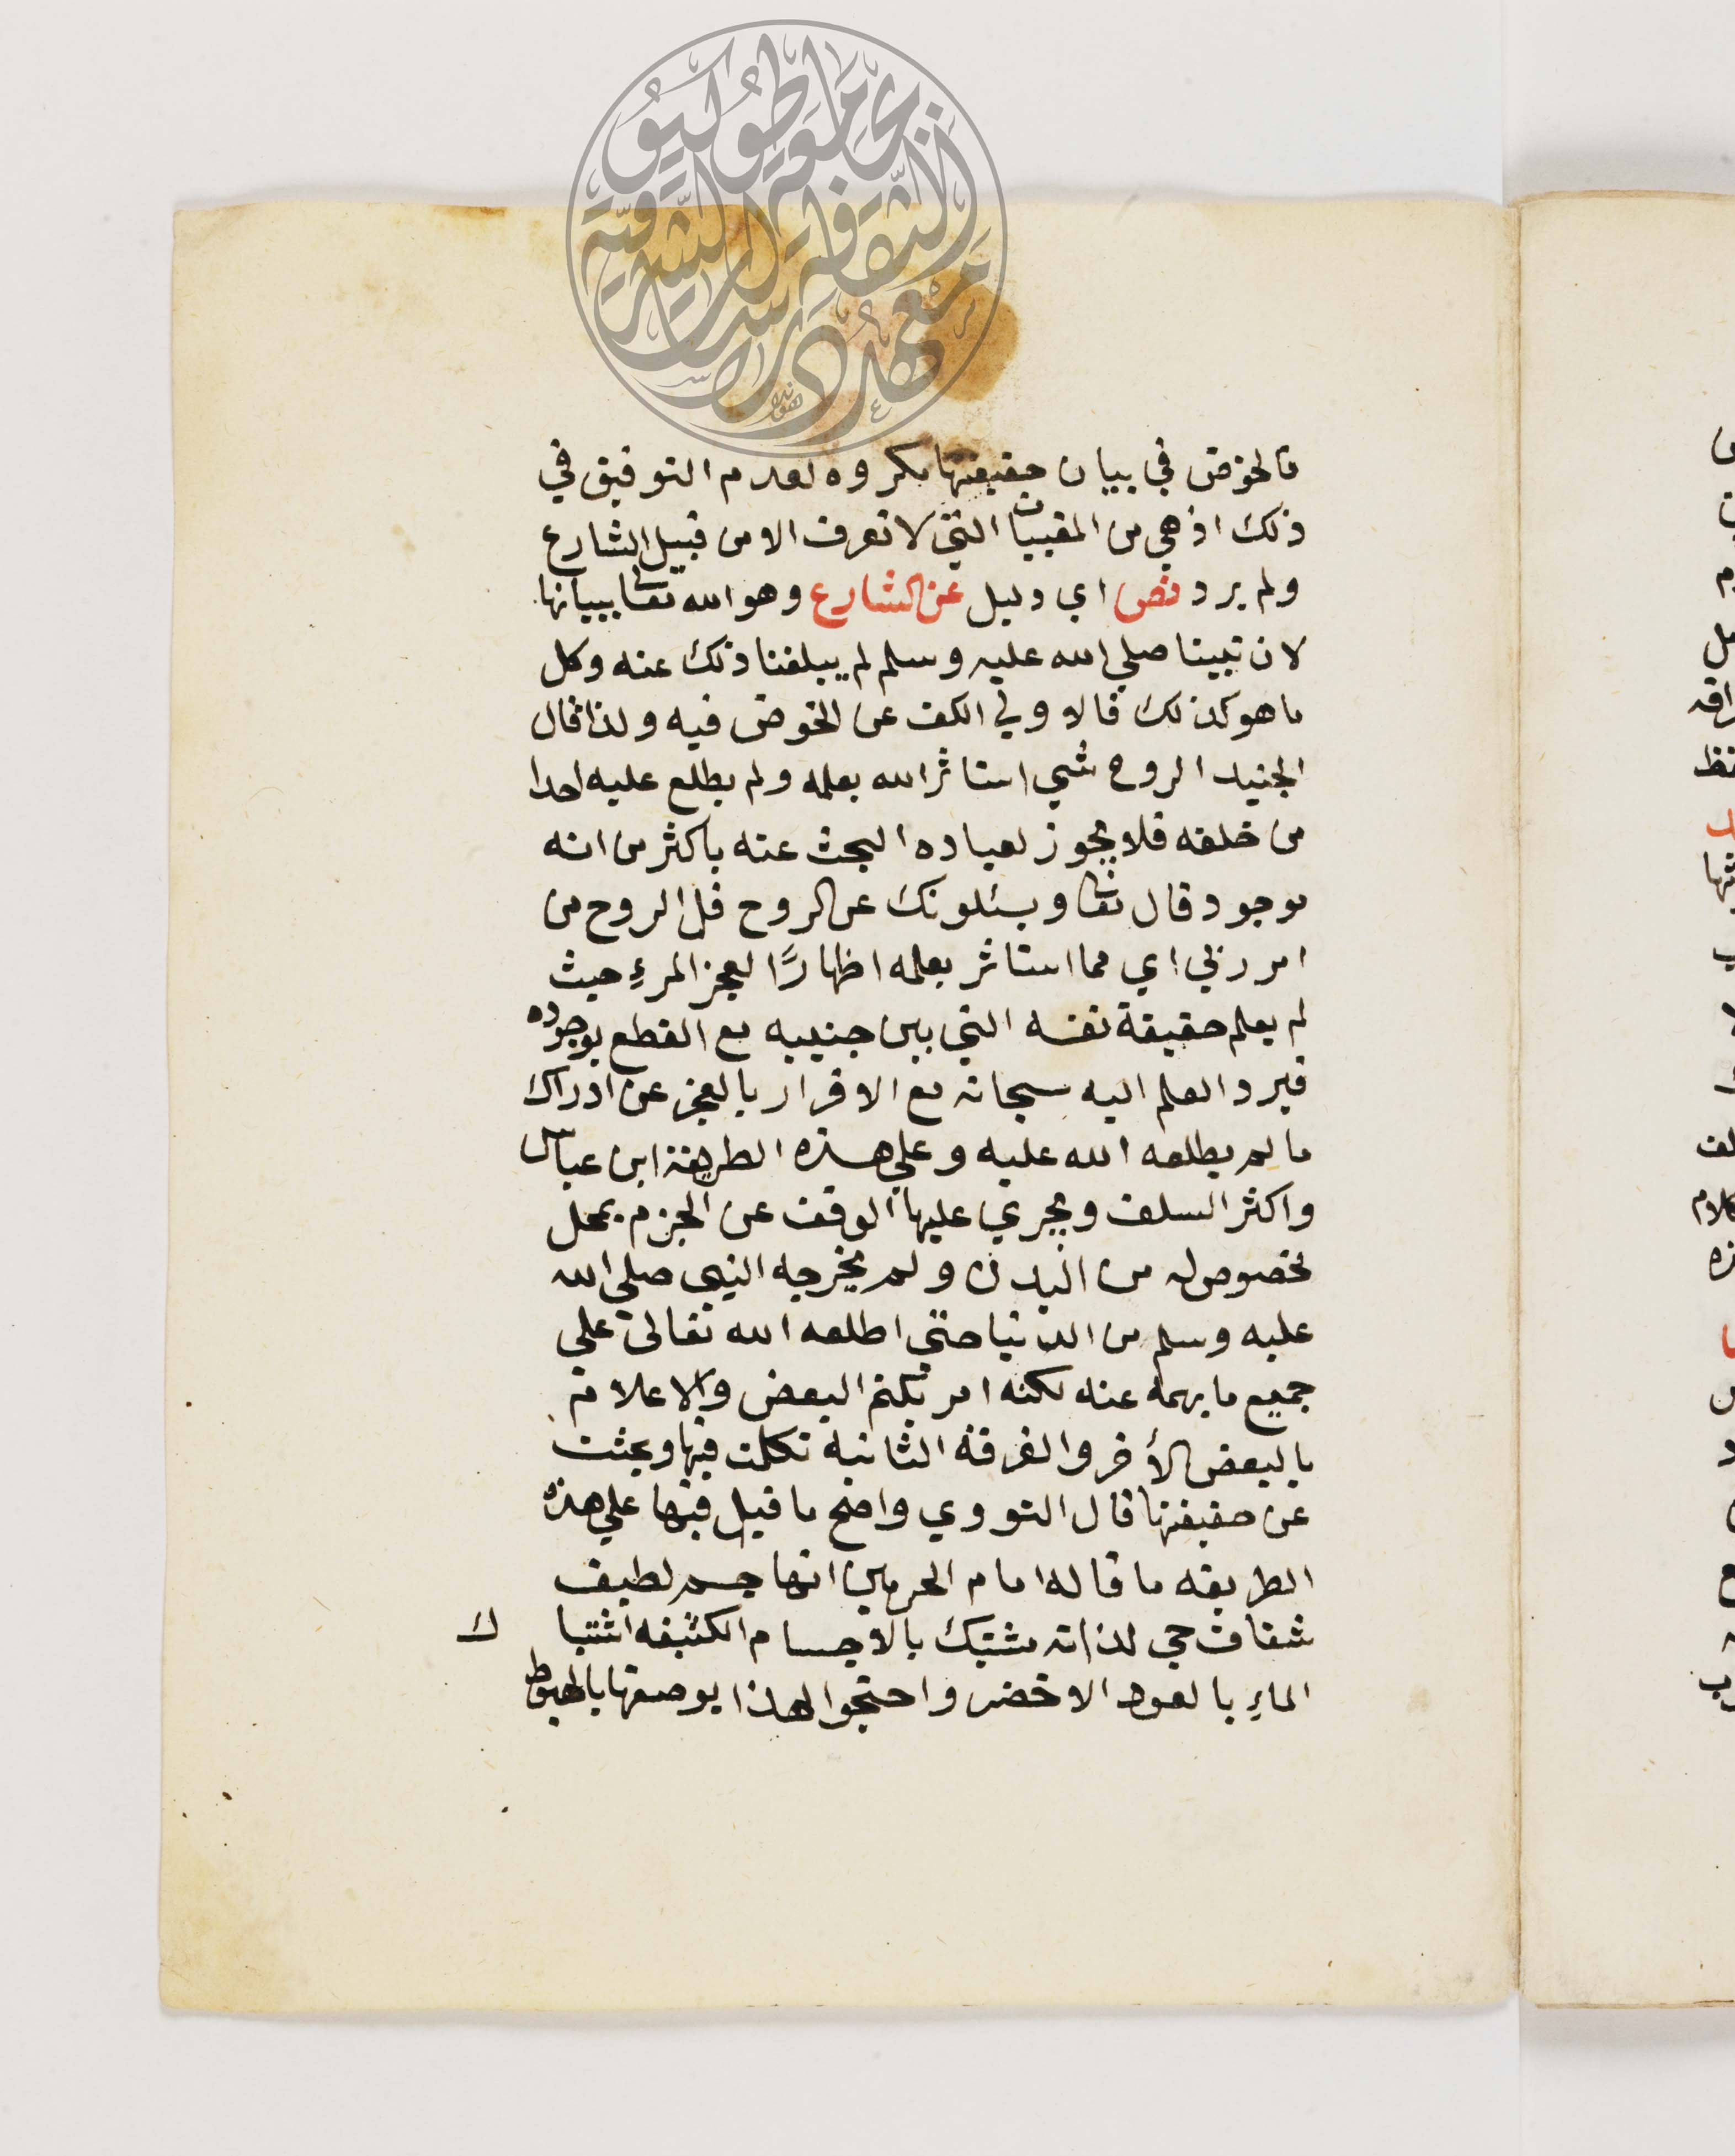 فالخوض في بيان حقيقتها مكروه لعدم التوقيق في
ذلك اذ هي من المغيبات التي لا تعرف الا من قبيل الشارع
ولم يرد نص اي دليل عن الشارع وهو الله تعالى ببيانها
لان نبينا صلي الله عليه وسلم لم يبلغنا ذلك عنه وكل
ما هو كذلك فالاولي الكف عن الخوض فيه ولذا قال
الجنيد الروح شي استاثر الله بعلمه ولم يطلع عليه احدا
من خلقه فلا يجوز لعباده البحث عنه باكثر من انه
موجود قال تعالى ويسئلونك عن الروح قل الروح من
امر ربي اي مما استاثر بعلمه اظهارًا لعجز المرءِ حيث
لم يعلم حقيقة نفسه التي بين جنبيه مع القطع بوجوده
فيرد العلم اليه سبحانه مع الاقرار بالعجز عن ادراك
ما لم يطلعه الله عليه وعلي هذه الطريقة ابن عباس
واكثر السلف ويجري عليها الوقف عن الجزم بمحل
مخصوص له من البدن ولم يخرجه النبي صلي الله
عليه وسلم من الدنيا حتي اطلعه الله تعالى علي
جميع ما بهمه عنه لكنه امر بكتم البعض والاعلام
بالبعض الأخر والفرقة الثانية تكلمت فيها وبحثت
عن حقيقتها قال النووي واصح ما قيل فيها علي هذه
الطريقه ما قاله امام الحرمين انها جسم لطيف
شفاف حي لذاته مشتبك بالاجسام الكثيفه اشتباك
الماءِ بالعود الاخضر واحتجوا لهذا بوصفها بالهبوط